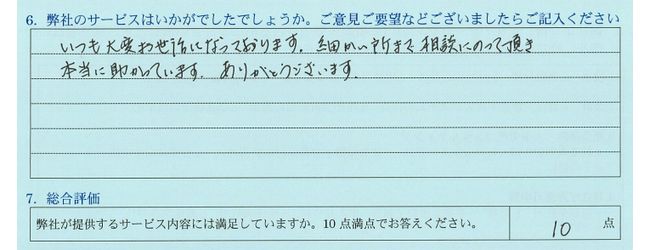 6. 弊社のサービスはいかがでしたでしょうか。ご意見ご要望などございましたらご記入ください
いつも大変お世話になっております。細かい所まで相談にのって頂き
本当に助かっています。ありがとうございます。
7. 総合評価
弊社が提供するサービス内容には満足していますか。10点満点でお答えください。 10 点